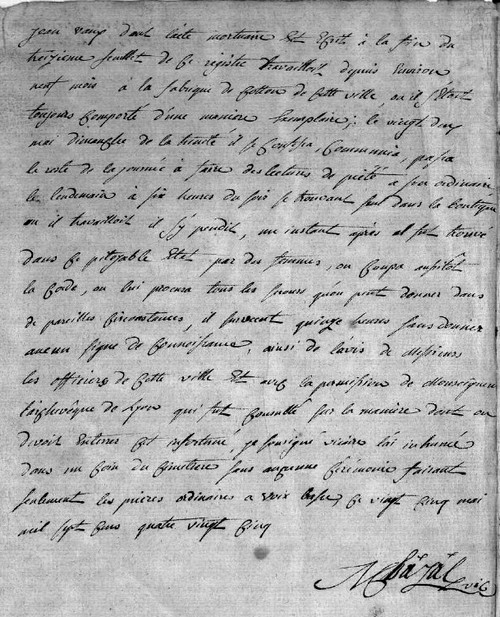 jean vaux dont l'acte mortuaire est ecrit à la fin du
treizieme feuillet de ce registre travailloit depuis environ
neuf mois à la fabrique de cotton de cette ville, ou il s'étoit
toujours comporté d'une maniere exemplaire; le vingt deux
mai dimanche de la trinité il se confessa, communia, passa
le reste de la journée à faire des lectures de piété à son ordinaire
le lendemain à six heures du soir se trouvant seul dans la boutique
ou il travailloit il s'y pendit, un instant après il fut trouvé
dans ce pitoyable état par des femmes, on coupa aussitôt
la corde, on lui procura tous les secours qu'on peut donner dans
de pareilles circonstances, il survecut quinze heures sans donner
aucun signe de connoissance, ainsi de l'avis de messieurs
les officiers de cette ville et avec la permission de monseigneur
l'archevêque de Lyon qui fut consulté sur la maniere dont on
devoit enterrer cet infortuné, je soussigné vicaire l'ai inhumé
dans un coin du cimetiere sans aucune cérémonie faisant
seulement les prieres ordinaires a voix basse, ce vingt cinq mai
mil sept cens quatre vingt cinq
Chazal vic